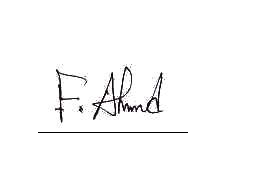 F. Ahmd